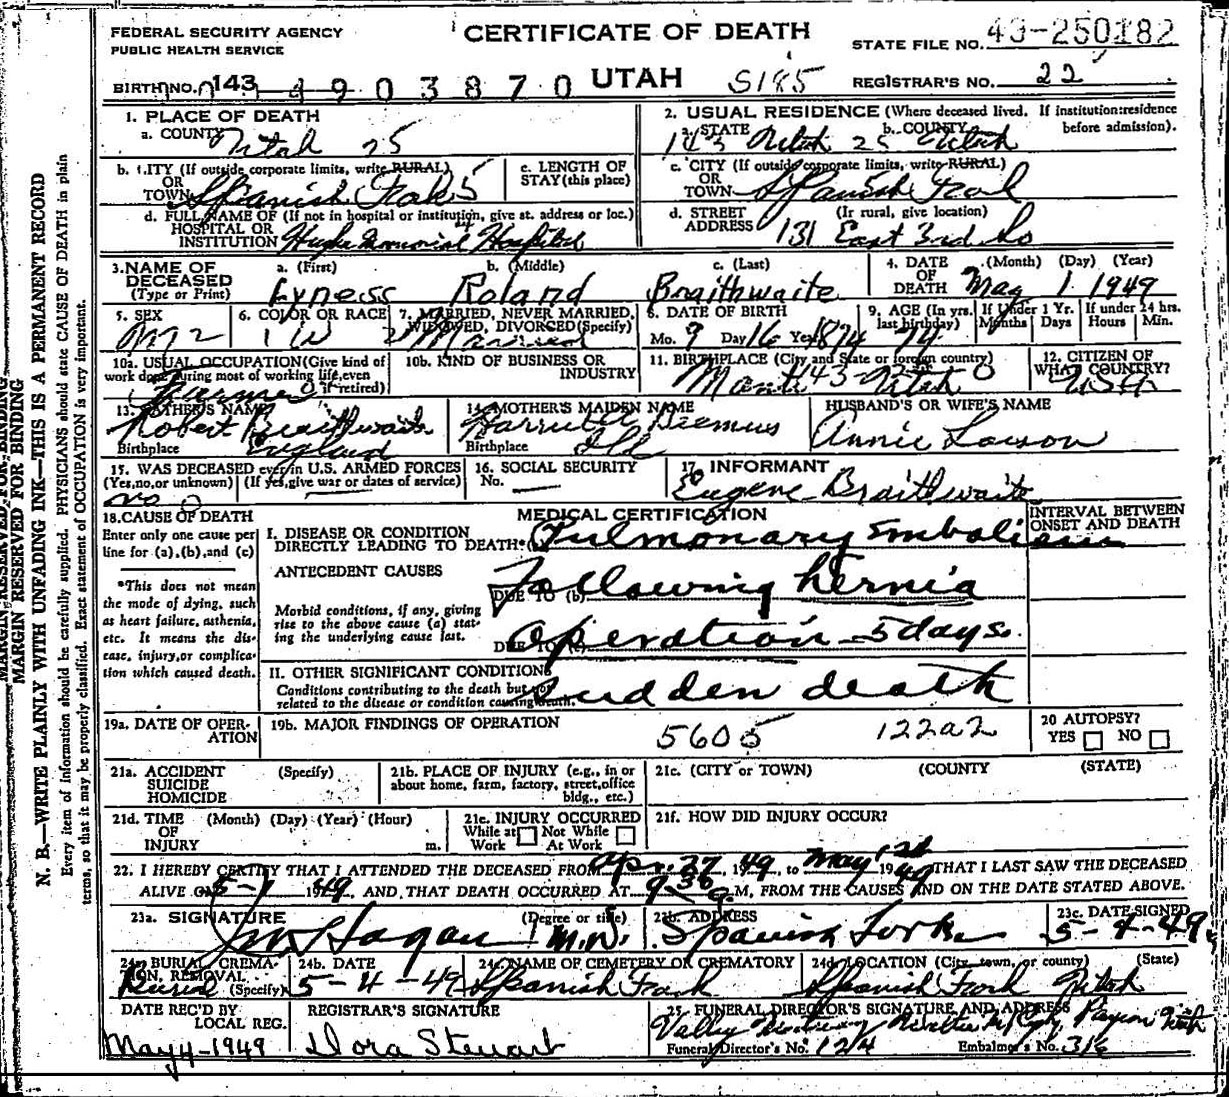 FEDERAL SECURITY AGENCY
PUBLIC HEALTH SERVICE
CERTIFICATE OF DEATH
STATE FILE NO. 43-250182
BIRTH NO. 143 4903870 UTAH S185 REGISTRAR'S NO. 22
1. PLACE OF DEATH
a. COUNTY Utah 25
2. USUAL RESIDENCE (Where deceased lived. If institution: residence before admission).
a. STATE 143 Utah 25 b. COUNTY Utah
b. CITY (If outside corporate limits, write RURAL) OR TOWN Spanish Fork 5
c. LENGTH OF STAY (this place)
c. CITY (If outside corporate limits, write RURAL) OR TOWN Spanish Fork
d. FULL NAME OF (If not in hospital or institution, give st. address or loc.) HOSPITAL OR INSTITUTION Hughes Memorial Hospital
d. STREET ADDRESS (If rural, give location) 131 East 3rd So
3. NAME OF DECEASED (Type or Print)
a. (First) b. (Middle) c. (Last)
Lyness Roland Braithwaite
4. DATE OF DEATH (Month) (Day) (Year)
May 1 1949
5. SEX M 2
6. COLOR OR RACE 1 W
7. MARRIED, NEVER MARRIED, WIDOWED, DIVORCED (Specify) 2 Married
8. DATE OF BIRTH
Mo. 9 Day 16 Yr. 1874
9. AGE (In yrs. last birthday) 74
If Under 1 Yr. Months Days
If under 24 hrs. Hours Min.
10a. USUAL OCCUPATION (Give kind of work done during most of working life, even if retired)
Farmer
10b. KIND OF BUSINESS OR INDUSTRY
11. BIRTHPLACE (City and State or foreign country)
Manti 43- Utah 0
12. CITIZEN OF WHAT COUNTRY?
USA
13. FATHER'S NAME
Robert Braithwaite
Birthplace England
14. MOTHER'S MAIDEN NAME
Harriett
Birthplace Ill
HUSBAND'S OR WIFE'S NAME
Annie Larson
15. WAS DECEASED ever in U.S. ARMED FORCES
(Yes, no, or unknown) (If yes, give war or dates of service)
no 0
16. SOCIAL SECURITY No.
17. INFORMANT
Eugene Braithwaite
18. CAUSE OF DEATH
Enter only one cause per line for (a), (b), and (c)
*This does not mean the mode of dying, such as heart failure, asthenia, etc. It means the disease, injury, or complication which caused death.
MEDICAL CERTIFICATION
INTERVAL BETWEEN ONSET AND DEATH
I. DISEASE OR CONDITION DIRECTLY LEADING TO DEATH* (a) Pulmonary embolism
ANTECEDENT CAUSES
Morbid conditions, if any, giving rise to the above cause (a) stating the underlying cause last.
DUE TO (b) following hernia
DUE TO (c) operation - 5 days.
II. OTHER SIGNIFICANT CONDITIONS
Conditions contributing to the death but not related to the disease or condition causing death.
Sudden death
19a. DATE OF OPERATION
19b. MAJOR FINDINGS OF OPERATION
5605 122a2
20 AUTOPSY?
YES NO
21a. ACCIDENT SUICIDE HOMICIDE (Specify)
21b. PLACE OF INJURY (e.g., in or about home, farm, factory, street, office bldg., etc.)
21c. (CITY or TOWN) (COUNTY) (STATE)
21d. TIME OF INJURY (Month) (Day) (Year) (Hour) m.
21e. INJURY OCCURRED
While at Work Not While At Work
21f. HOW DID INJURY OCCUR?
22. I HEREBY CERTIFY THAT I ATTENDED THE DECEASED FROM Apr. 27 1949, to May 1st 1949 THAT I LAST SAW THE DECEASED
ALIVE ON 5-1 1949 AND, THAT DEATH OCCURRED AT 9-30 a. M, FROM THE CAUSES AND ON THE DATE STATED ABOVE.
23a. SIGNATURE (Degree or title)
Hagan M.D.
23b. ADDRESS
Spanish Fork
23c. DATE SIGNED
5-4-49
24a. BURIAL, CREMATION, REMOVAL (Specify)
Burial
24b. DATE
5-4-49
24c. NAME OF CEMETERY OR CREMATORY
Spanish Fork
24d. LOCATION (City, town, or county) (State)
Spanish Fork Utah
DATE REC'D BY LOCAL REG.
May 4-1949
REGISTRAR'S SIGNATURE
Dora Stewart
25. FUNERAL DIRECTOR'S SIGNATURE AND ADDRESS
Valley Mortuary Payson Utah
Funeral Director's No. 124 Embalmer's No. 316
MARGIN RESERVED FOR BINDING
MARGIN RESERVED FOR BINDING
N. B.—WRITE PLAINLY WITH UNFADING INK—THIS IS A PERMANENT RECORD
Every item of information should be carefully supplied. PHYSICIANS should state CAUSE OF DEATH in plain
terms, so that it may be properly classified. Exact statement of OCCUPATION is very important.